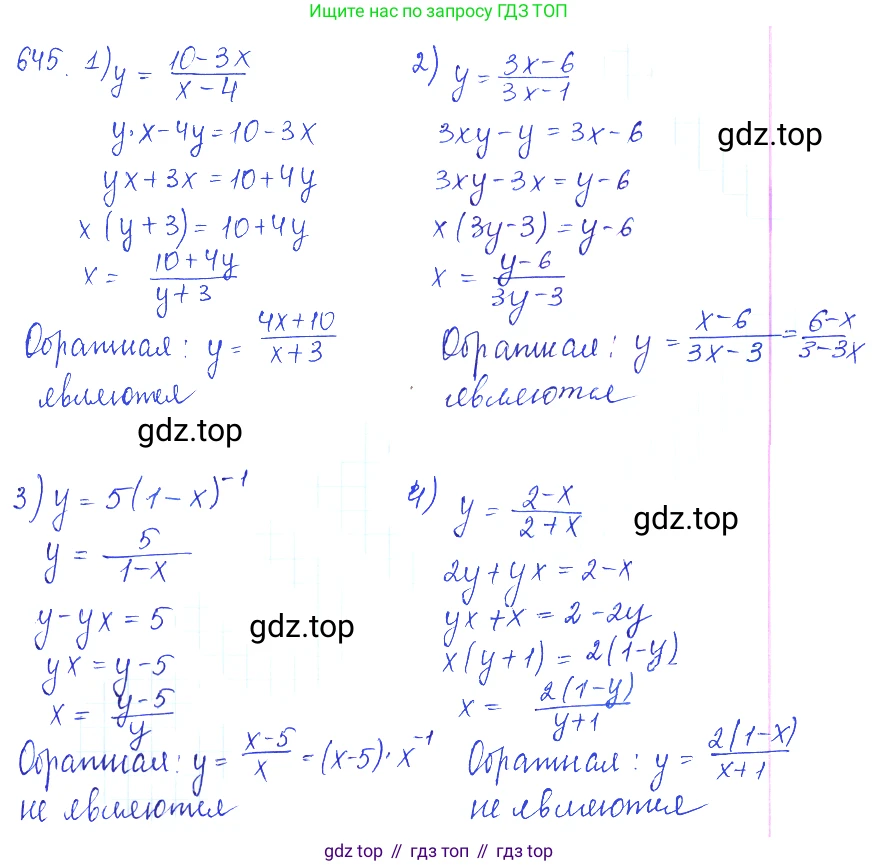 Ищите нас по запросу ГДЗ ТОП
645. 1) y = (10-3x)/(x-4)
y·x-4y=10-3x
yx+3x=10+4y
x(y+3)=10+4y
x = (10+4y)/(y+3)
Обратная: y = (4x+10)/(x+3)
являются
gdz.top
2) y = (3x-6)/(3x-1)
3xy-y=3x-6
gdz.top
3xy-3x=y-6
x(3y-3)=y-6
x = (y-6)/(3y-3)
Обратная: y = (x-6)/(3x-3) = (6-x)/(3-3x)
являются
3) y = 5(1-x)⁻¹
y = 5/(1-x)
y-yx=5
gdz.top
yx=y-5
x = (y-5)/y
Обратная: y = (x-5)/x = (x-5)·x⁻¹
не являются
4) y = (2-x)/(2+x)
gdz.top
2y+yx=2-x
yx+x=2-2y
x(y+1)=2(1-y)
x = 2(1-y)/(y+1)
Обратная: y = 2(1-x)/(x+1)
не являются
gdz.top // гдз топ // gdz.top